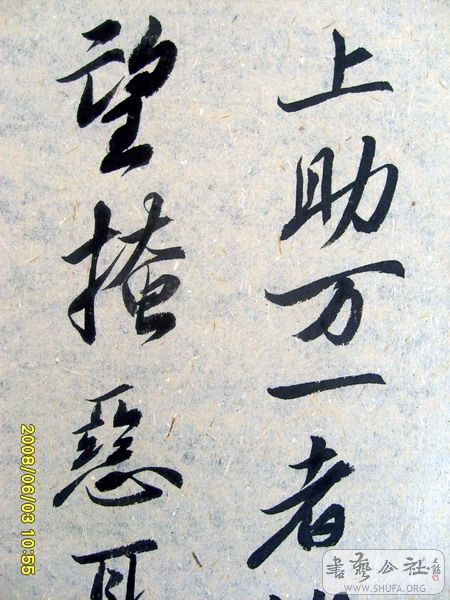 上助万一者
望掩惡耳
2008/06/03 10:55
書藝公社
WWW.SHUFA.ORG